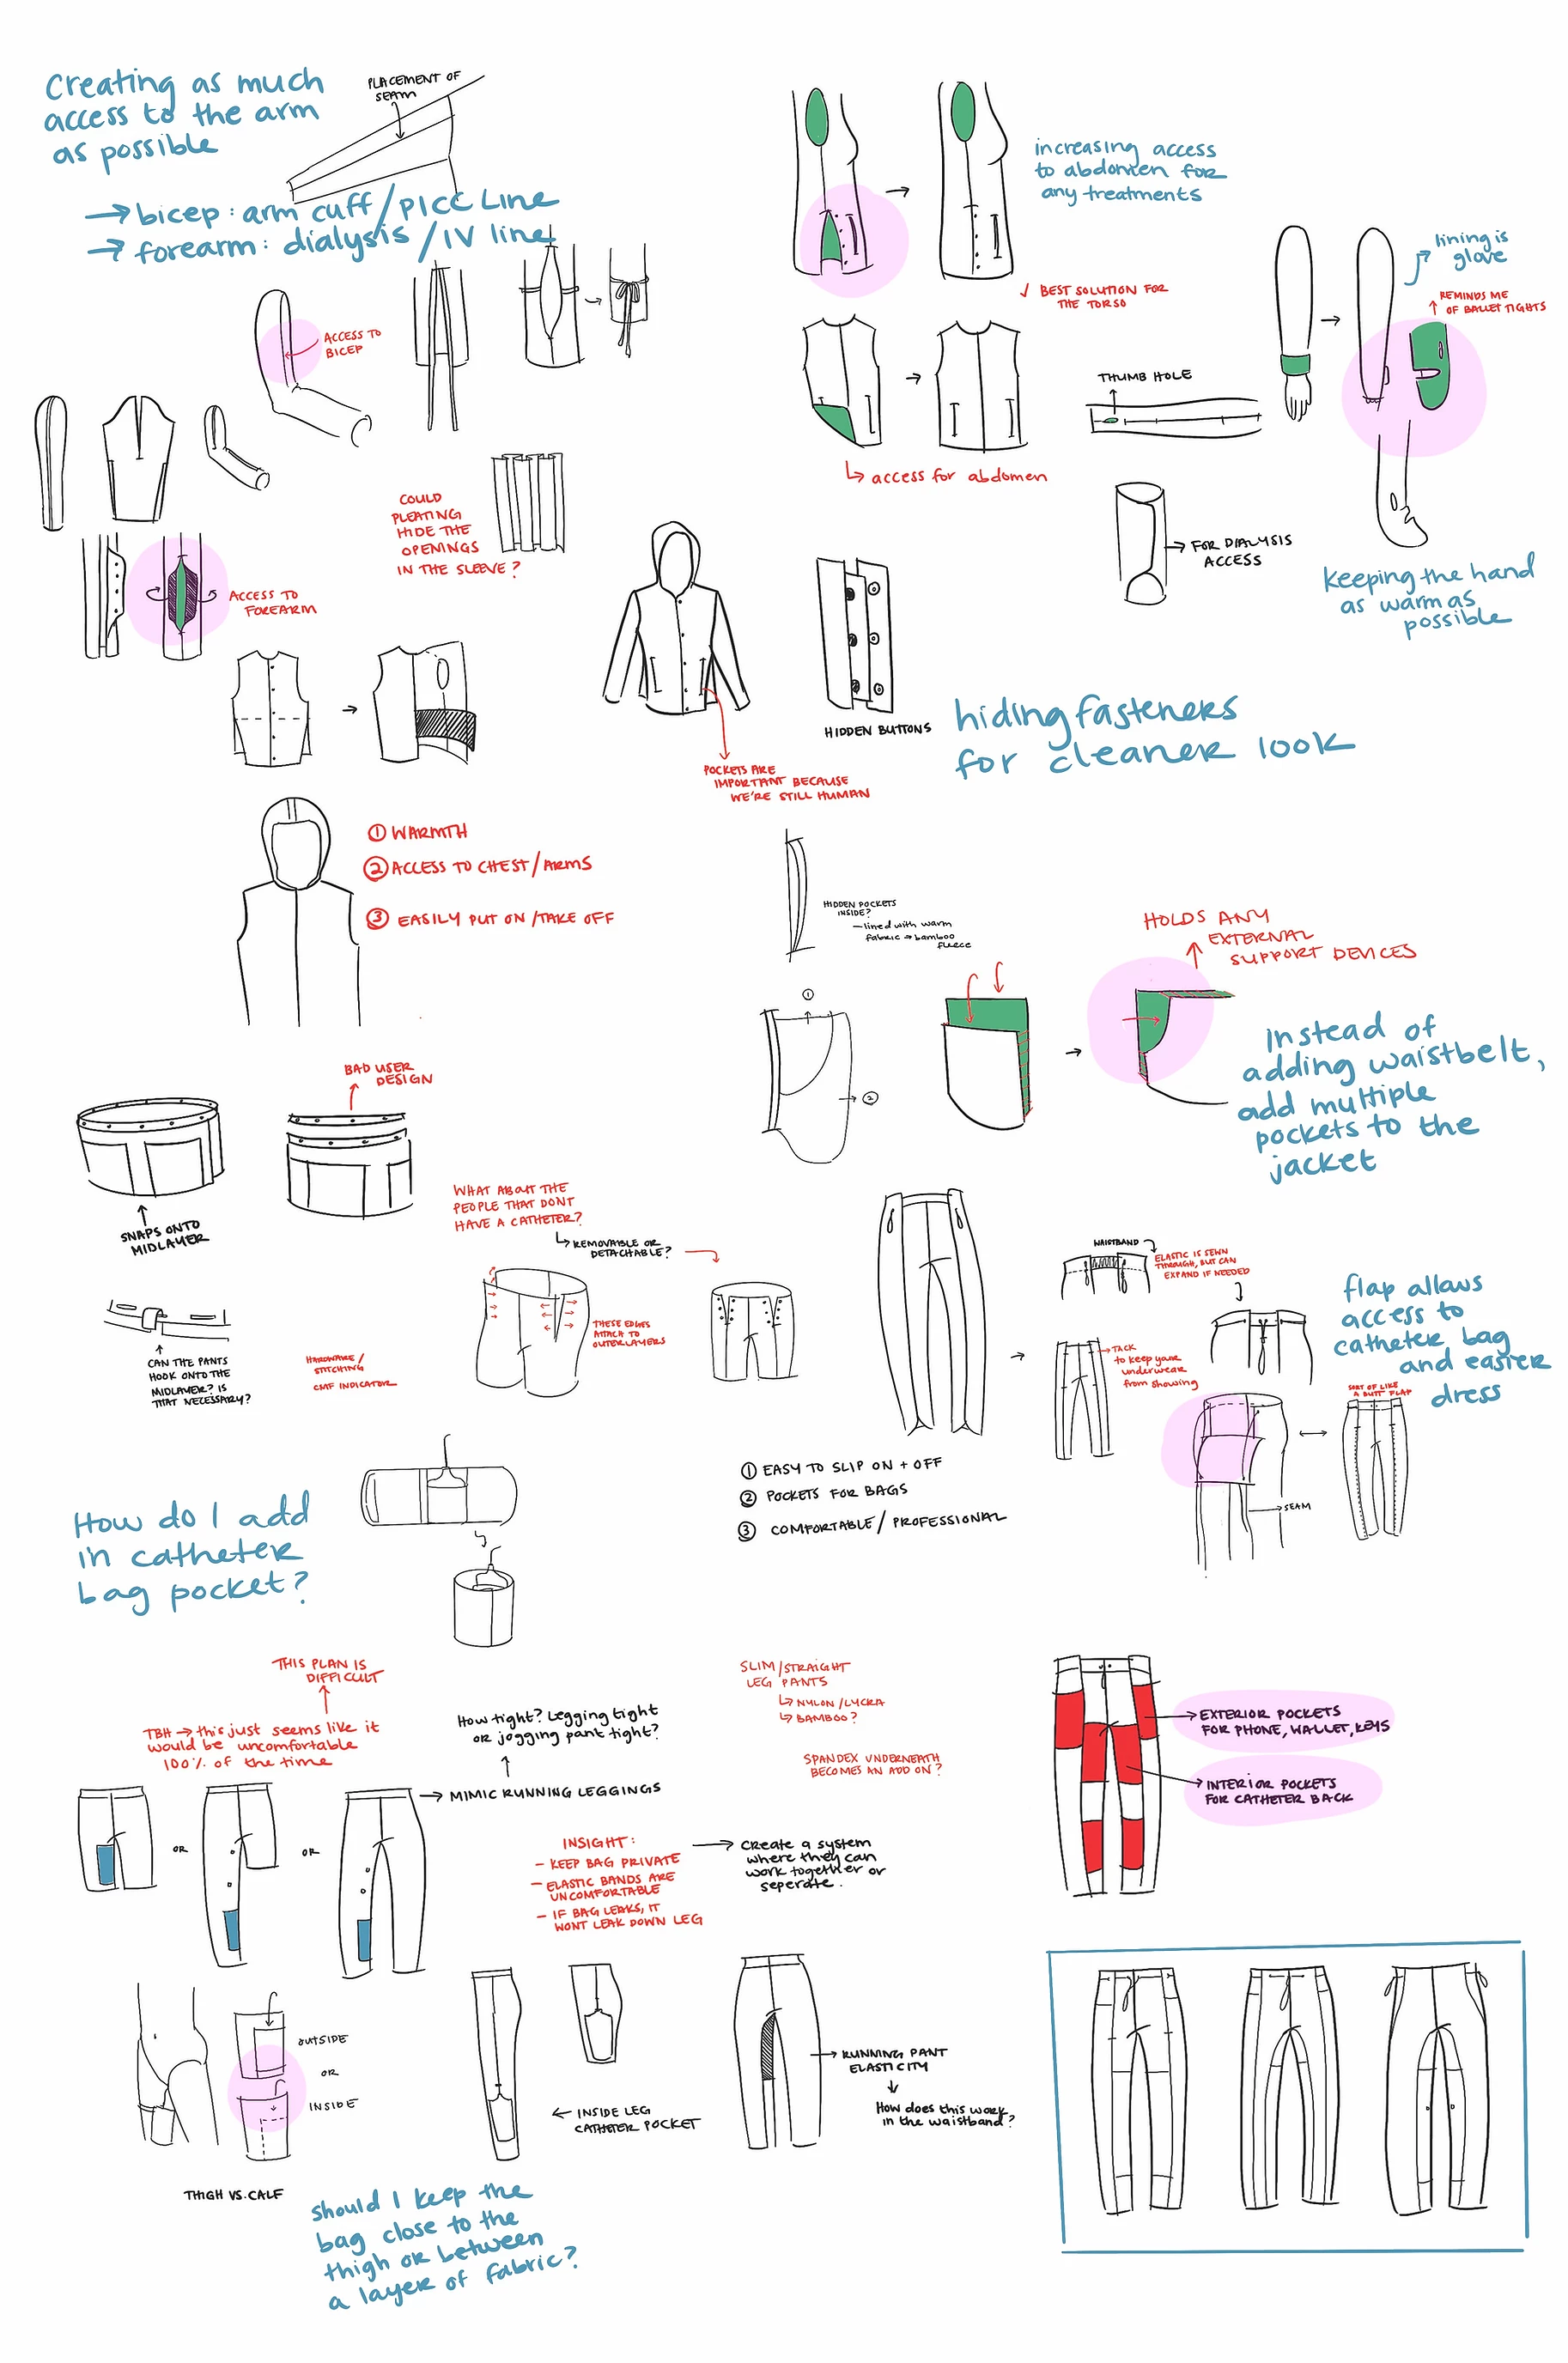 Creating as much
access to the arm
as possible
PLACEMENT OF
SEAM
→ bicep: arm cuff/PICC Line
→ forearm: dialysis/IV line
ACCESS TO
BICEP
COULD
PLEATING
HIDE THE
OPENINGS
IN THE SLEEVE?
ACCESS TO
FOREARM
increasing access
to abdomen for
any treatments
✓ BEST SOLUTION FOR
THE TORSO
access for abdomen
lining is
glove
REMINDS ME
OF BALLET TIGHTS
THUMB HOLE
FOR DIALYSIS
ACCESS
keeping the hand
as warm as
possible
HIDDEN BUTTONS
hiding fasteners
for cleaner look
POCKETS ARE
IMPORTANT BECAUSE
WE'RE STILL HUMAN
① WARMTH
② ACCESS TO CHEST/ARMS
③ EASILY PUT ON/TAKE OFF
HIDDEN POCKETS
INSIDE?
- lined with warm
fabric → bamboo
fleece
①
②
HOLDS ANY
EXTERNAL
SUPPORT DEVICES
Instead of
adding waistbelt,
add multiple
pockets to the
jacket
BAD USER
DESIGN
SNAPS ONTO
MIDLAYER
CAN THE PANTS
HOOK ONTO THE
MIDLAYER? IS
THAT NECESSARY?
HARDWARE/
STITCHING
CMF INDICATOR
WHAT ABOUT THE
PEOPLE THAT DONT
HAVE A CATHETER?
REMOVABLE OR
DETACHABLE?
THESE EDGES
ATTACH TO
OUTERLAYERS
WAISTBAND
ELASTIC IS SEWN
THROUGH, BUT CAN
EXPAND IF NEEDED
TACK
to keep your
underwear
from showing
flap allows
access to
catheter bag
and easier
dress
SORT OF LIKE
A BUTT FLAP
SEAM
① EASY TO SLIP ON + OFF
② POCKETS FOR BAGS
③ COMFORTABLE/PROFESSIONAL
How do I add
in catheter
bag pocket?
THIS PLAN IS
DIFFICULT
TBH → this just seems like it
would be uncomfortable
100% of the time
How tight? Legging tight
or jogging pant tight?
MIMIC RUNNING LEGGINGS
OR
OR
SLIM/STRAIGHT
LEG PANTS
NYLON/LYCRA
BAMBOO?
SPANDEX UNDERNEATH
BECOMES AN ADD ON?
INSIGHT:
- KEEP BAG PRIVATE
- ELASTIC BANDS ARE
UNCOMFORTABLE
- IF BAG LEAKS, IT
WONT LEAK DOWN LEG
Create a system
where they can
work together or
seperate.
EXTERIOR POCKETS
FOR PHONE, WALLET, KEYS
INTERIOR POCKETS
FOR CATHETER BACK
OUTSIDE
OR
INSIDE
THIGH VS. CALF
INSIDE LEG
CATHETER POCKET
RUNNING PANT
ELASTICITY
How does this work
in the waistband?
should I keep the
bag close to the
thigh or between
a layer of fabric?